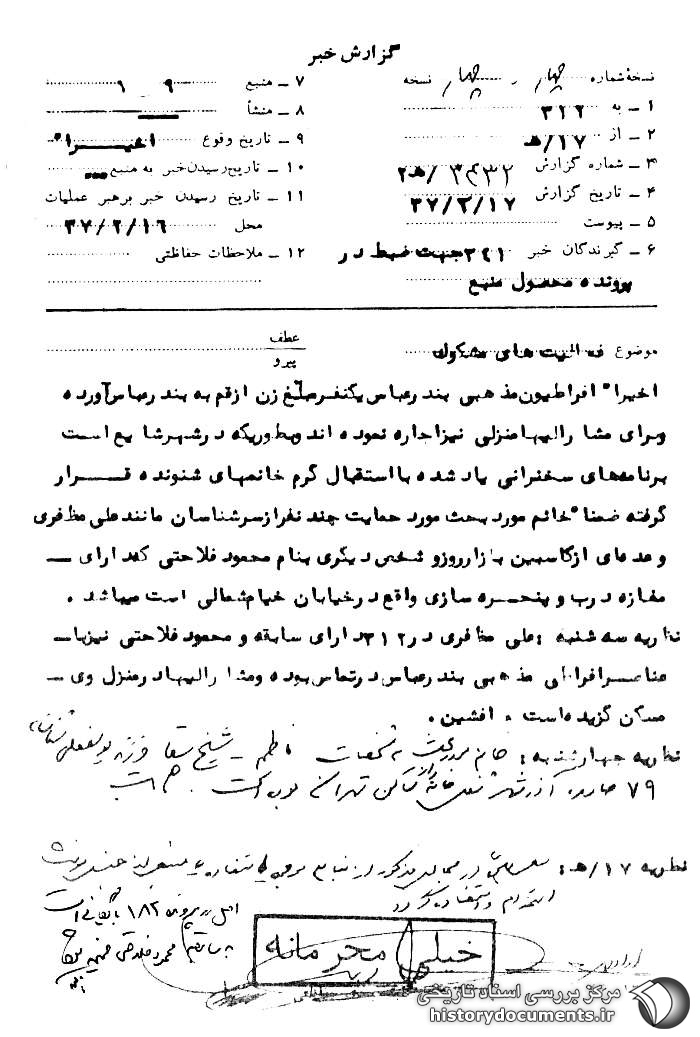 گزارش خبر
نسخهٔ شماره چهار از چهار نسخه
۱ ـ به ۳۱۲
۲ ـ از ۱۷/هـ
۳ ـ شماره گزارش ۳۴۳۲/هـ۲
۴ ـ تاریخ گزارش ۳۷/۲/۱۷
۵ ـ پیوست
۶ ـ گیرندگان خبر ۳۴۱ جهت ضبط در
پرونده محصول منبع
۷ ـ منبع ۹ـ۱
۸ ـ منشأ
۹ ـ تاریخ وقوع اخیراً
۱۰ ـ تاریخ رسیدن خبر به منبع
۱۱ ـ تاریخ رسیدن خبر برهبر عملیات
محل ۳۷/۲/۱۶
۱۲ ـ ملاحظات حفاظتی
موضوع فعالیت های مشکوک
عطف
پیرو
اخیراً افراطیون مذهبی بندرعباس یکنفر مبلغ زن از قم به بندرعباس آورده
وبرای مشارالیها منزلی نیز اجاره نموده اند وبطوریکه در شهر شایع است
برنامه های سخنرانی یاد شده با استقبال گرم خانمهای شنونده قرار
گرفته ضمناً خانم مورد بحث مورد حمایت چند نفر از سرشناسان مانند علی مظفری
وعده ای از کاسبین بازار روز و شخص دیگری بنام محمود فلاحتی که دارای ـ
مغازه درب و پنجره سازی واقع در خیابان خیام شمالی است میباشد .
نظریه سه شنبه : علی مظفری در ۳۱۲ دارای سابقه و محمود فلاحتی نیز با ـ
عناصر افراطی مذهبی بندرعباس در تماس بوده ومشارالیها در منزل وی ـ
مسکن گزیده است . افشین .
نظریه چهارشنبه : خانم مورد بحث به مشخصات فاطمه ـ شیخ سقا فرزند
۷۹ صادره آذرشهر شغل خانه دار ساکن تهران بوده است
نظریه ۱۷/هـ : در مجالس مذکور از منبع
استفاده گردد
اصل در پرونده ۱۸۲ بایگانی است
به سابقه محمود فلاحتی ضمیمه
خیلی محرمانه
مرکز بررسی اسناد تاریخی
historydocuments.ir